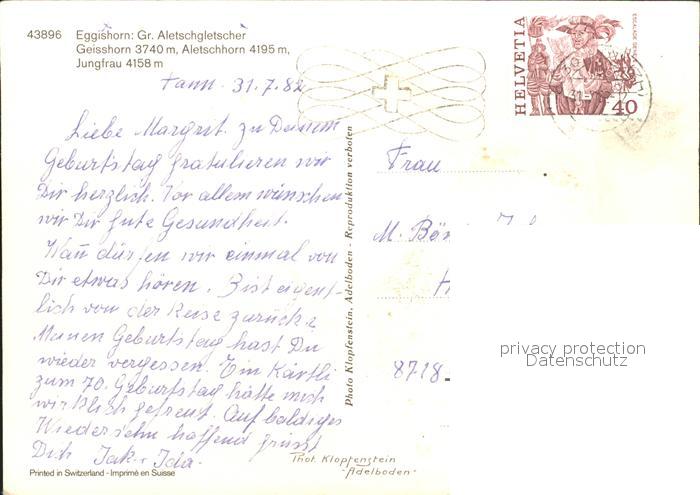 43896 Eggishorn: Gr. Aletschgletscher
Geisshorn 3740 m, Aletschhorn 4195 m,
Jungfrau 4158 m
HELVETIA
ESCALADE GENÈVE
40
Tann. 31.7.82
Liebe Margrit. zu Deinem
Geburtstag gratulieren wir
Dir herzlich. Vor allem wünschen
wir Dir gute Gesundheit.
Wan̄ dürfen wir einmal von
Dir etwas hören. Bist eigent-
lich von der Reise zurück?
Meinen Geburtstag hast Du
wieder vergessen. Ein Kärtli
zum 70. Geburtstag hätte mich
wirklich gefreut. Auf baldiges
Wiedersehn hoffend grüsst
Dich Jak. + Ida.
Photo Klopfenstein, Adelboden - Reproduktion verboten
Frau
M. Bö
8718
privacy protection
Datenschutz
Phot. Klopfenstein
- Adelboden -
Printed in Switzerland - Imprimé en Suisse